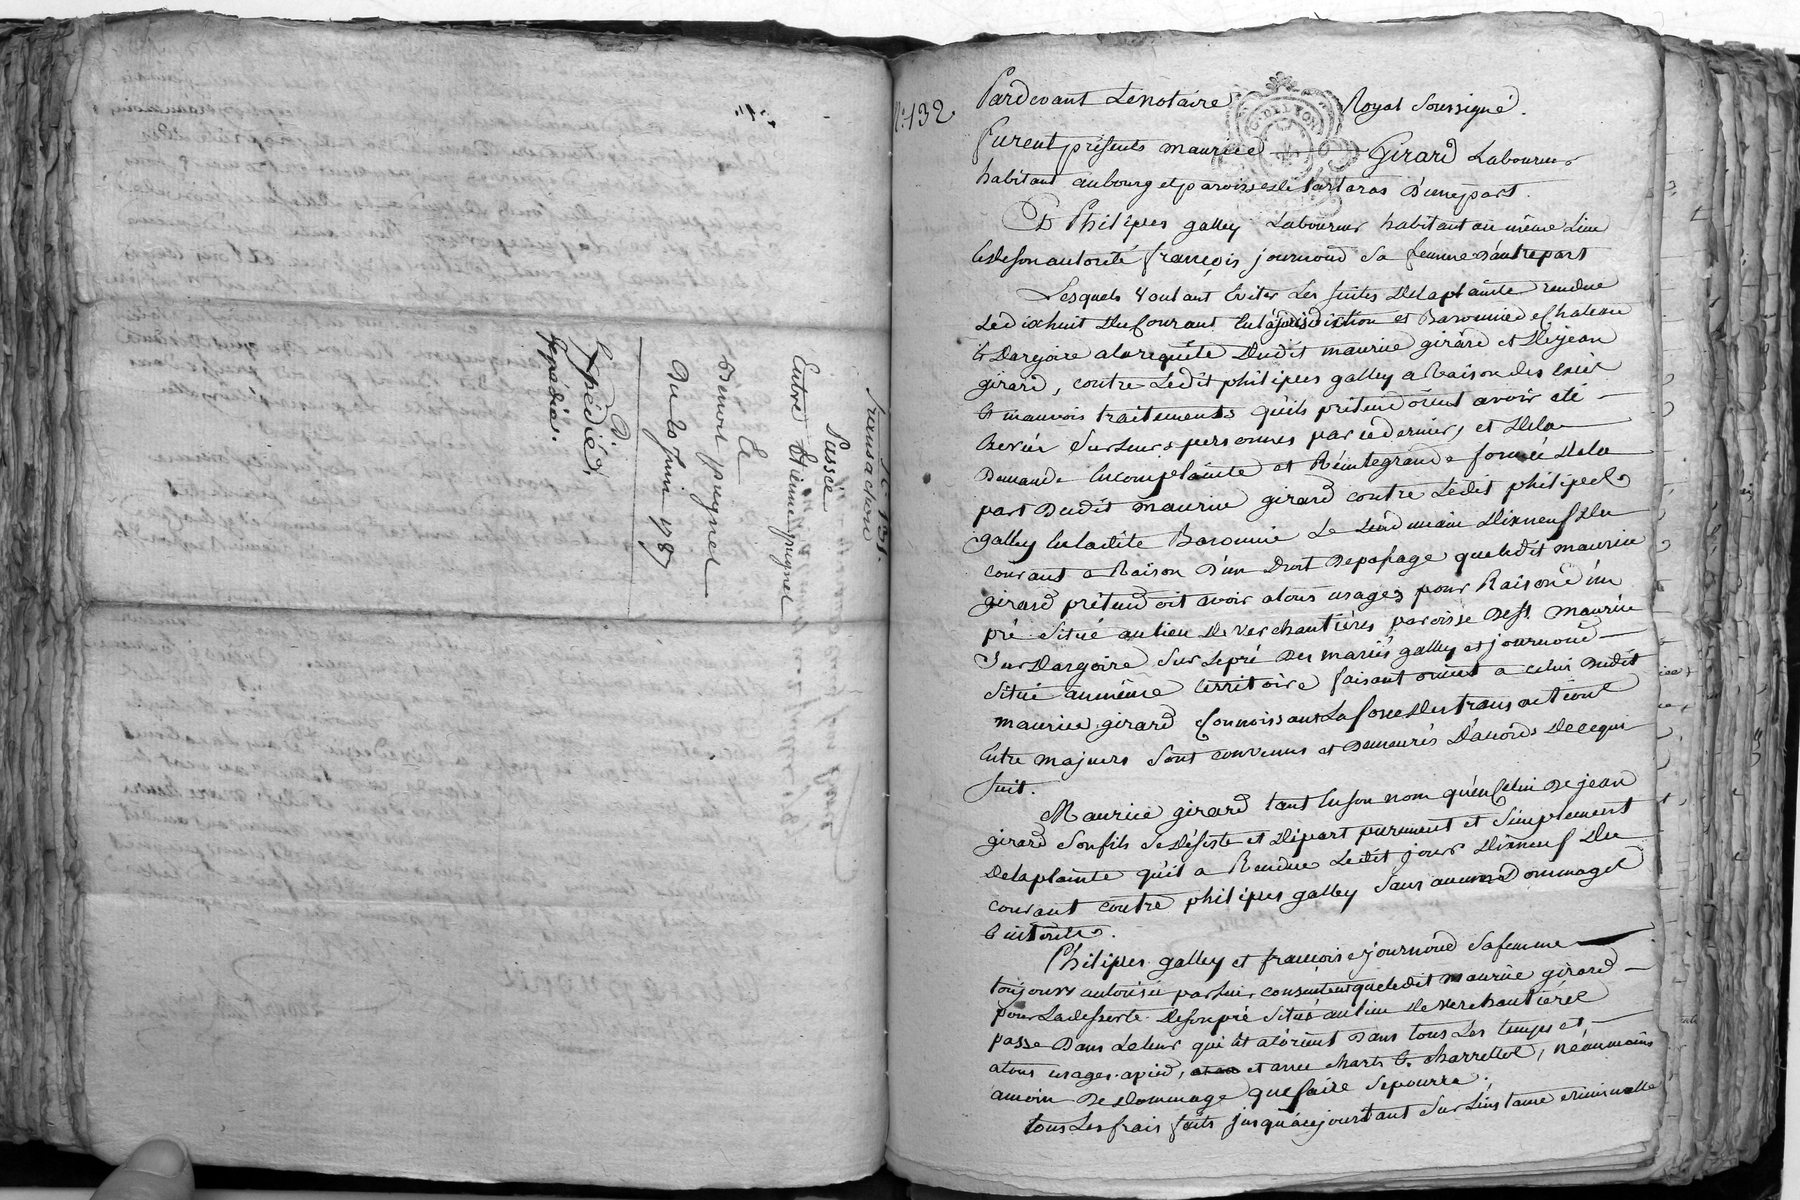 N.º 131.
Transaction
Passée
Entre Etienne pugnet
Et
Benoit pugnet
Du 20 Juin 1787
Expédié
Expédiée.
N.º 132
Pardevant Lenotaire Royal Soussigné.
furent présents maurice Girard Laboureur
habitant aubourg et paroisse de tartaras D'unepart.
Et Philipes galley Laboureur habitant au même Lieu
et deson autorité françois journoud Sa femme D'autrepart
Lesquels Voulant Eviter Les suites Delaplainte rendue
Ledixhuit Ducourant En la jurisdiction et Baronnie de Chateau
et Dargoire alarequête Dudit maurice girard et De jean
girard, contre Ledit philipes galley a Raison des Excès
et mauvois traitements qu'ils prétendoient avoir été
Sur Leurs personnes par cedernier, et Dela
Demande En complainte et Réintegrande formée Dela
part Dudit maurice girard contre Ledit philipes
galley En Ladite Baronnie Le Lendemain Dixneuf Du
courant a Raison D'un Droit Depassage queledit maurice
girard prétendoit avoir atous usages pour Raison d'un
pré Situé aulieu De Verchantières paroisse De St. Maurice
Sur Dargoire Sur Lepré Des mariés galley et journoud
Situé aumême territoire faisant orient a celui Dudit
maurice girard Connoissant La force Des transactions
Entre majeurs Sont convenus et Demeurés D'accords De cequi
Suit.
Maurice girard tant Enson nom qu'en Celui De jean
girard Sonfils Se Désiste et Départ purement et Simplement
Delaplainte qu'il a Rendue Ledit jour Dixneuf Du
courant contre philipes galley Sans aucuns Dommages
Et intérêts.
Philipes galley et françoise journoud Safemme
toujours autorisée par Lui, consentent queledit maurice girard
pour Ladesserte Desonpré Situé aulieu De Verchantières
passe Dans Leleur qui Est alorient Dans tous Les temps et
atous usages apied, et avec chars Et charrettes, néanmoins
amoin De Dommage que faire Sepourra.
tous Les frais faits jusqu'àcejourtant Sur L'instance criminelle